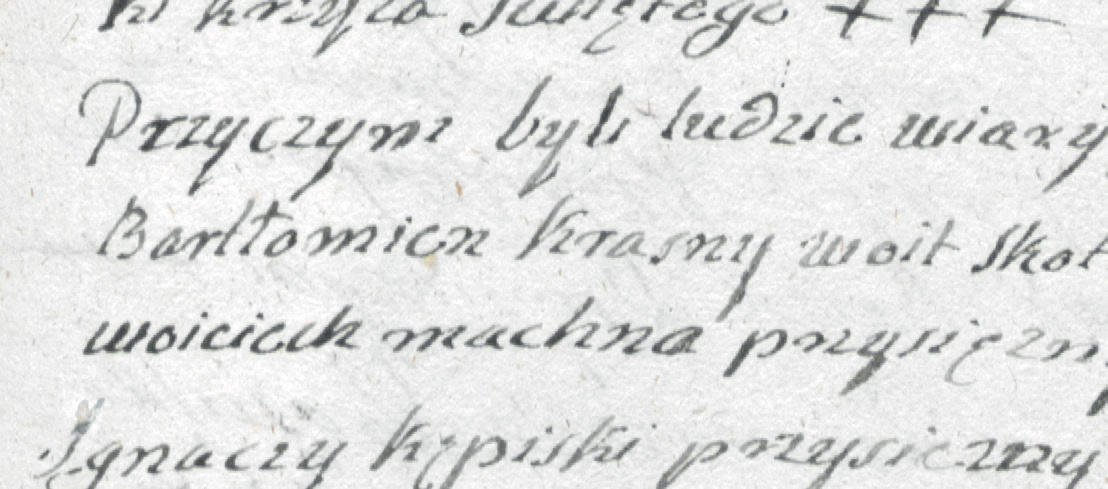 krzyża Swiętego +++
Przyczym byli ludzie wiary
Bartłomien Krasny woit Skot
woicicch machna przysięzny
Ignaczy Kępiski przysiezny